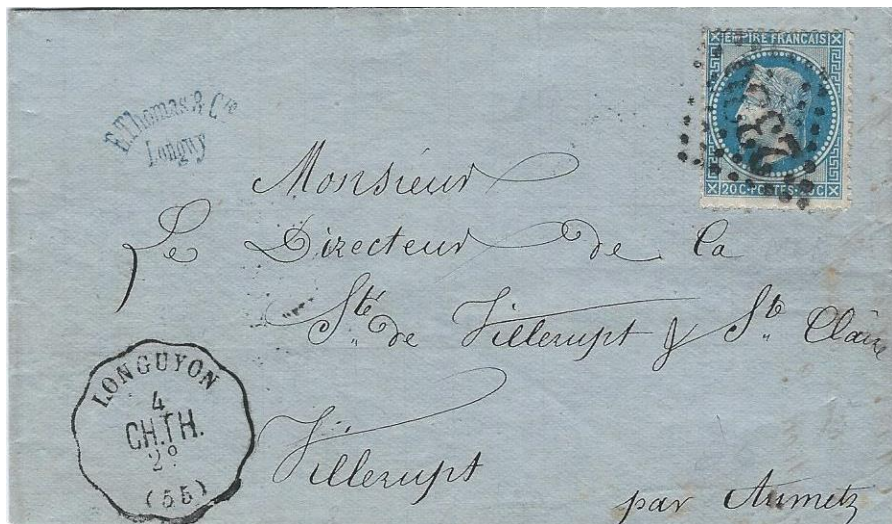 EMPIRE FRANÇAIS
20 C · POSTES · 20 C
E. Thomas & Cie
Longwy
Monsieur
Le Directeur de la
Sté de Villerupt & Ste Claire
Villerupt
par Aumetz
LONGUYON
4
CH.TH.
2º
(55)